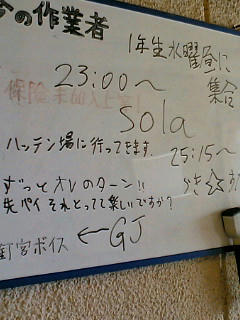 の作業者
1年生水曜昼に
集合
23:00〜
sola
ハッテン場に行ってきます。
25:15〜
らき☆
ずっとオレのターン!!
先パイ それとってて楽しいですか?
釘宮ボイス ←GJ